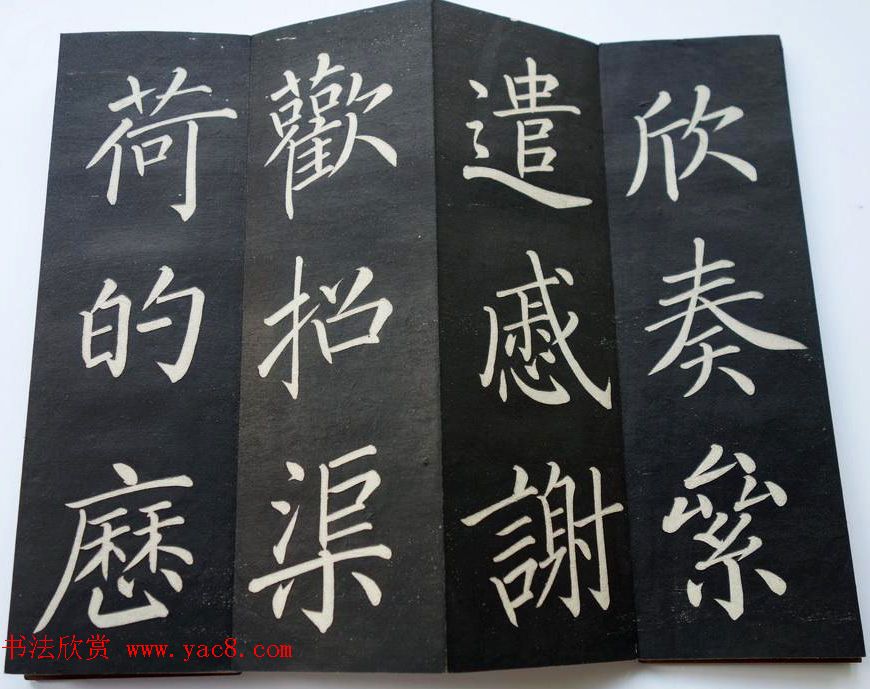 欣奏絫
遣慼謝
歡招渠
荷的歷
书法欣赏 www.yac8.com